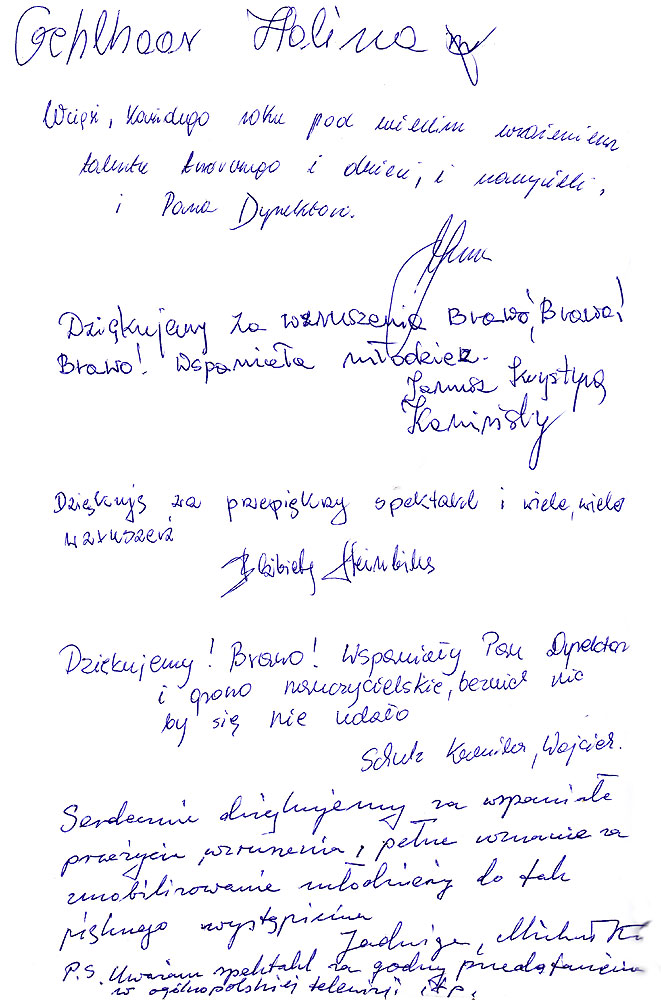 Gehlhaar Halina
Wciąż, każdego roku pod wielkim wrażeniem
talentu twórczego i dzieci, i nauczycieli,
i Pana Dyrektora.
Dziękujemy za wzruszenia Brawo, Brawo!
Brawo! Wspaniała młodzież.
Janusz Krystyna
Kamińscy
Dziękuję za przepiękny spektakl i wiele, wiele
wzruszeń
Elżbieta
Dziękujemy! Brawo! Wspaniały Pan Dyrektor
i grono nauczycielskie, bez nich nic
by się nie udało
Schulz Kamila, Wojciech.
Serdecznie dziękujemy za wspaniałe
przeżycia, wzruszenia i pełne uznanie za
zmobilizowanie młodzieży do tak
pięknego wystąpienia
Jadwiga,
P.S. Uważam spektakl za godny przedstawienia
w ogólnopolskiej telewizji itp.